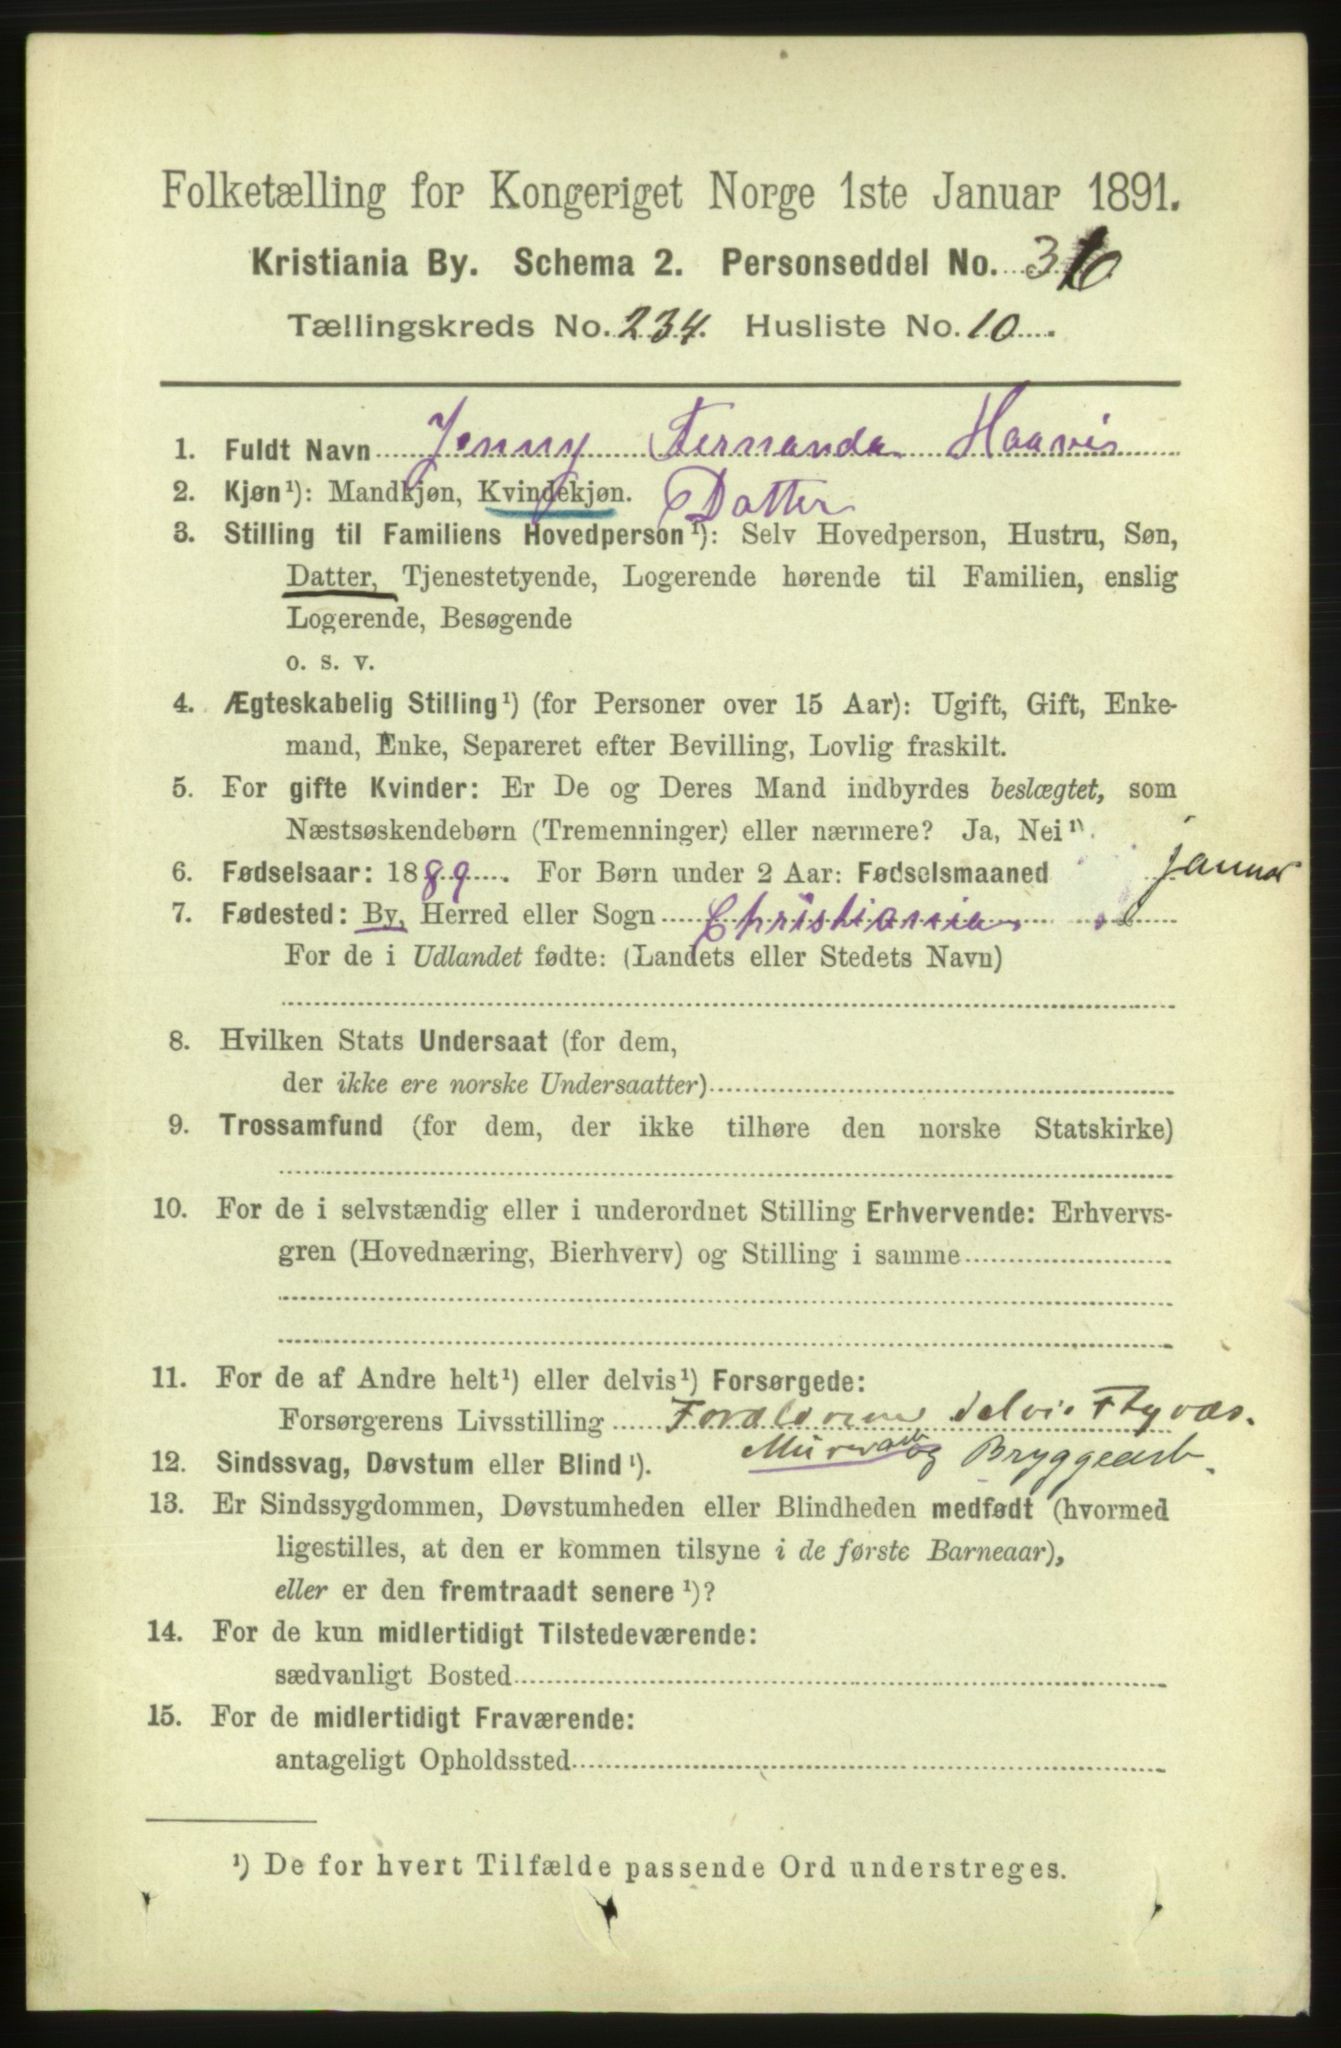 Folketælling for Kongeriget Norge 1ste Januar 1891.
Kristiania By. Schema 2. Personseddel No. 36
Tællingskreds No. 234. Husliste No. 10
1. Fuldt Navn Jenny Fernanda Haavis
2. Kjøn¹): Mandkjøn, Kvindekjøn. Datter
3. Stilling til Familiens Hovedperson¹): Selv Hovedperson, Hustru, Søn,
Datter, Tjenestetyende, Logerende hørende til Familien, enslig
Logerende, Besøgende
o. s. v.
4. Ægteskabelig Stilling¹) (for Personer over 15 Aar): Ugift, Gift, Enke-
mand, Enke, Separeret efter Bevilling, Lovlig fraskilt.
5. For gifte Kvinder: Er De og Deres Mand indbyrdes beslægtet, som
Næstsøskendebørn (Tremenninger) eller nærmere? Ja, Nei¹).
6. Fødselsaar: 1889. For Børn under 2 Aar: Fødselsmaaned Januar
7. Fødested: By, Herred eller Sogn Christiania
For de i Udlandet fødte: (Landets eller Stedets Navn)
8. Hvilken Stats Undersaat (for dem,
der ikke ere norske Undersaatter)
9. Trossamfund (for dem, der ikke tilhøre den norske Statskirke)
10. For de i selvstændig eller i underordnet Stilling Erhvervende: Erhvervs-
gren (Hovednæring, Bierhverv) og Stilling i samme
11. For de af Andre helt¹) eller delvis¹) Forsørgede:
Forsørgerens Livsstilling
Murerarb og Bryggearb.
12. Sindssvag, Døvstum eller Blind¹).
13. Er Sindssygdommen, Døvstumheden eller Blindheden medfødt (hvormed
ligestilles, at den er kommen tilsyne i de første Barneaar),
eller er den fremtraadt senere¹)?
14. For de kun midlertidigt Tilstedeværende:
sædvanligt Bosted
15. For de midlertidigt Fraværende:
antageligt Opholdssted
¹) De for hvert Tilfælde passende Ord understreges.